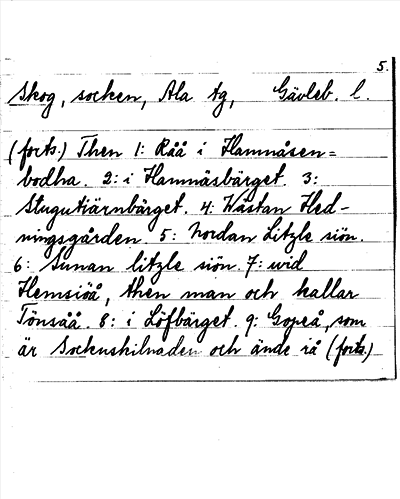 5.
Skog, socken, Ala tg, Gävleb. l.
(forts.) Then 1: Råå i Hamnåsen=
bodha. 2: i Hamnäsbärget. 3:
Stugutiärnbärget. 4: Wästan Hed-
ningsgården. 5: Nordan Litzle siön.
6: Sunan litzle siön. 7: wid
Hemsiöå, then man och kallar
Tönsåå. 8: i Löfbärget. 9: Gopeå, som
är Socknskilnaden och ände rå (forts.)